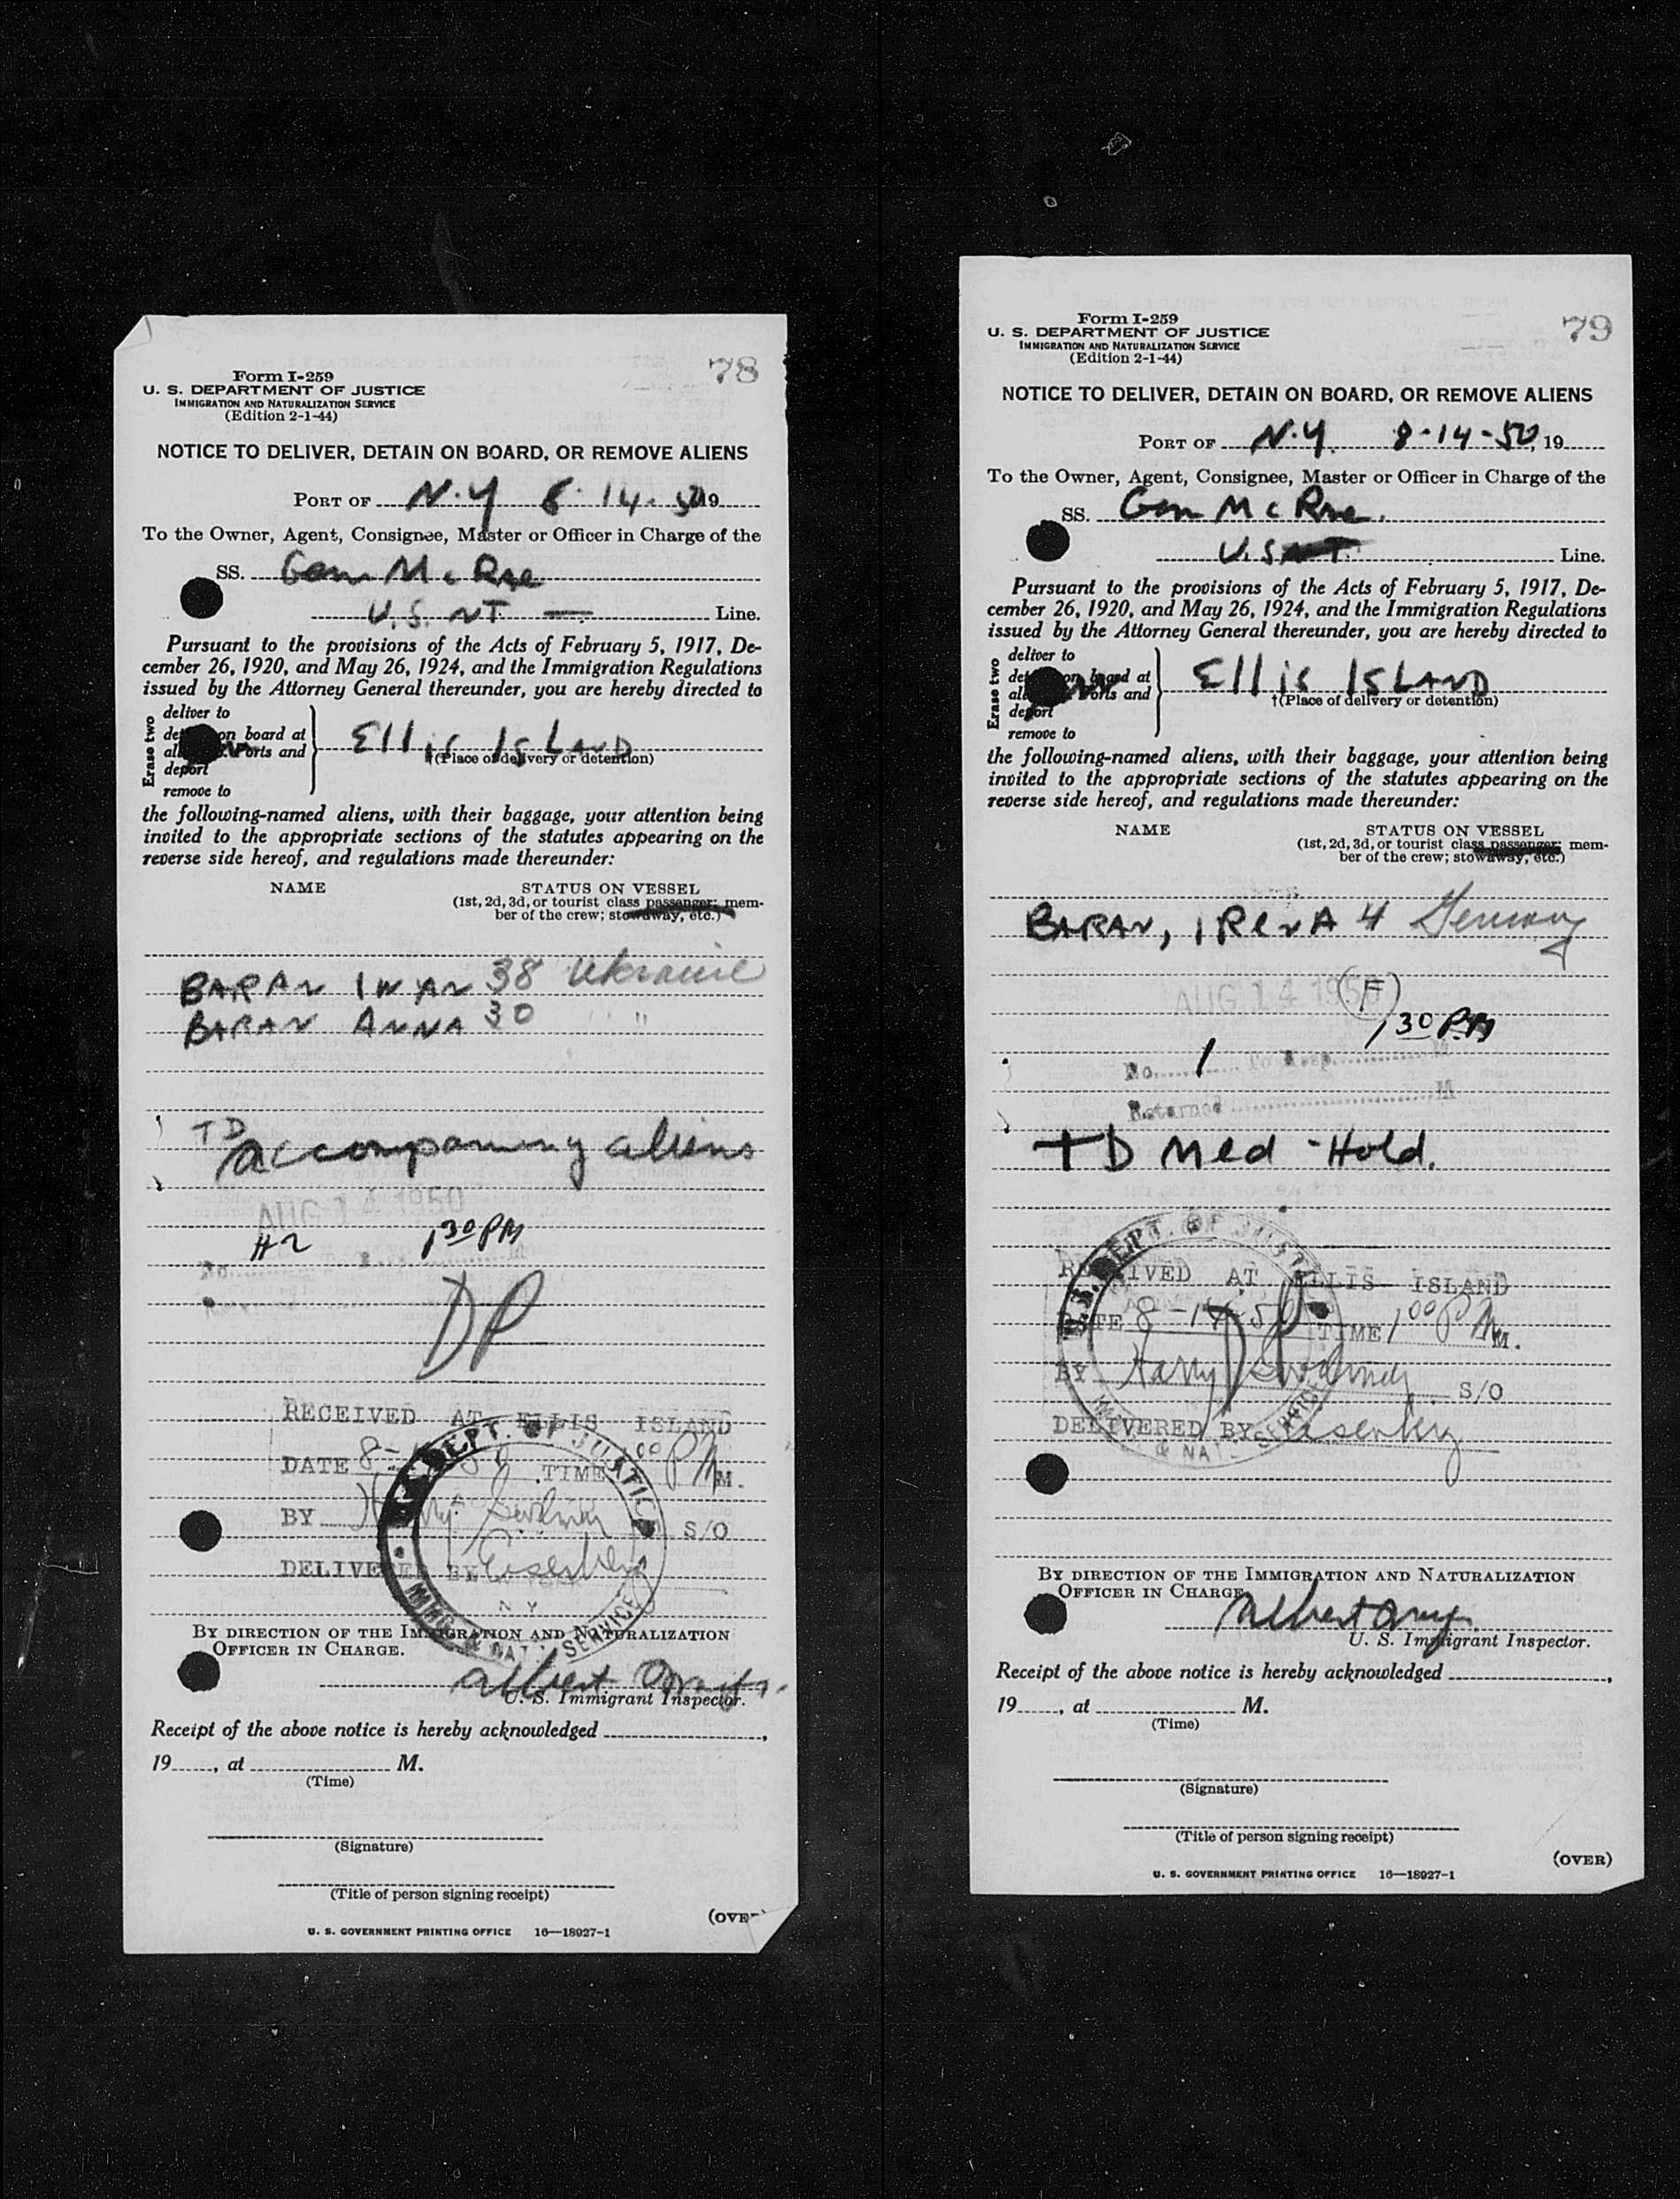 78
Form I-259
U. S. DEPARTMENT OF JUSTICE
IMMIGRATION AND NATURALIZATION SERVICE
(Edition 2-1-44)
NOTICE TO DELIVER, DETAIN ON BOARD, OR REMOVE ALIENS
PORT OF N.Y 8-14-50 19
To the Owner, Agent, Consignee, Master or Officer in Charge of the
SS. Gen McRae
U.S. NT — Line.
Pursuant to the provisions of the Acts of February 5, 1917, De-
cember 26, 1920, and May 26, 1924, and the Immigration Regulations
issued by the Attorney General thereunder, you are hereby directed to
Erase two
deliver to
on board at
Ports and
deport
remove to
Ellis Island
†(Place of delivery or detention)
the following-named aliens, with their baggage, your attention being
invited to the appropriate sections of the statutes appearing on the
reverse side hereof, and regulations made thereunder:
NAME STATUS ON VESSEL
(1st, 2d, 3d, or tourist class passenger; mem-
ber of the crew; stowaway, etc.)
BARAN IWAN 38 Ukraine
BARAN ANNA 30 "
TD
accompanying aliens
AUG 14 1950
#2 1 30 PM
DP
RECEIVED AT ELLIS ISLAND
DATE 8- TIME 1 00 P M M.
BY Harry S/O
DELIVERED BY
U.S. DEPT. OF JUSTICE
IMMIG. & NAT. SERVICE
N Y
BY DIRECTION OF THE IMMIGRATION AND NATURALIZATION
OFFICER IN CHARGE.
Albert
U. S. Immigrant Inspector.
Receipt of the above notice is hereby acknowledged ,
19 , at M.
(Time)
(Signature)
(Title of person signing receipt)
(OVE
U. S. GOVERNMENT PRINTING OFFICE 16—18927-1
79
Form I-259
U. S. DEPARTMENT OF JUSTICE
IMMIGRATION AND NATURALIZATION SERVICE
(Edition 2-1-44)
NOTICE TO DELIVER, DETAIN ON BOARD, OR REMOVE ALIENS
PORT OF N.Y. 8-14-50, 19
To the Owner, Agent, Consignee, Master or Officer in Charge of the
SS. Gen McRae.
U.S. NT Line.
Pursuant to the provisions of the Acts of February 5, 1917, De-
cember 26, 1920, and May 26, 1924, and the Immigration Regulations
issued by the Attorney General thereunder, you are hereby directed to
Erase two
deliver to
on board at
Ports and
deport
remove to
Ellis Island
†(Place of delivery or detention)
the following-named aliens, with their baggage, your attention being
invited to the appropriate sections of the statutes appearing on the
reverse side hereof, and regulations made thereunder:
NAME STATUS ON VESSEL
(1st, 2d, 3d, or tourist class passenger; mem-
ber of the crew; stowaway, etc.)
BARAN, IRENA 4 Germany
AUG 14 1950 (F)
1 30 P.M
No. 1 To Hosp. M
Returned M
TD Med - Hold.
U.S. DEPT. OF JUSTICE
RECEIVED AT ELLIS ISLAND
DATE 8-14-50 TIME 1 00 P M M.
DP
BY Harry S/O
DELIVERED BY
IMMIG. & NAT. SERVICE
BY DIRECTION OF THE IMMIGRATION AND NATURALIZATION
OFFICER IN CHARGE
Albert
U. S. Immigrant Inspector.
Receipt of the above notice is hereby acknowledged ,
19 , at M.
(Time)
(Signature)
(Title of person signing receipt)
(OVER)
U. S. GOVERNMENT PRINTING OFFICE 16—18927-1